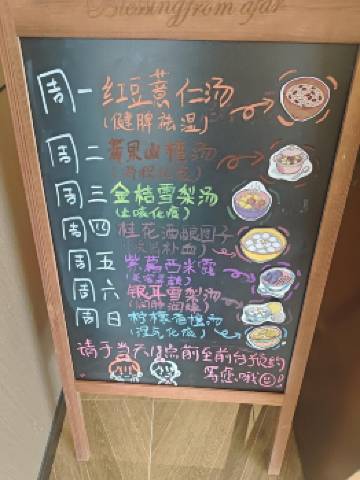 Blessing from afar
周一 红豆薏仁汤
(健脾祛湿)
周二 苹果山楂汤
周三 金桔雪梨汤
(止咳化痰)
周四 桂花酒酿圆子
补血)
周五 紫葛西米露
周六 银耳雪梨汤
周日 柠檬
(理气化痰)
请于当天18点前至前台预约